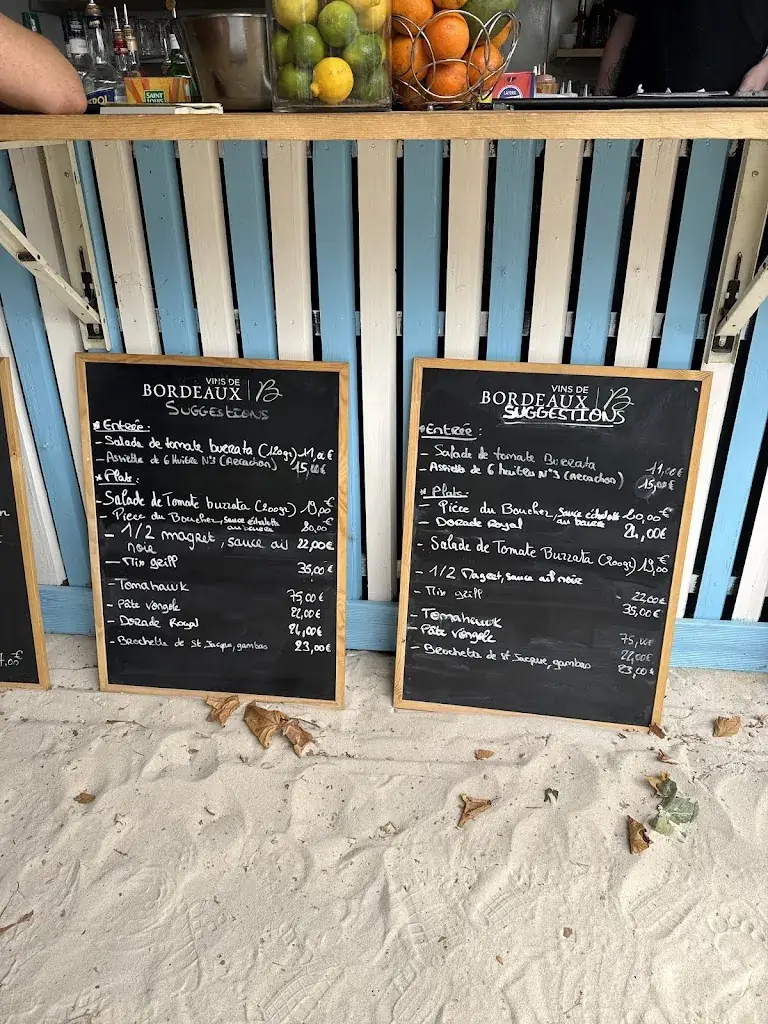 SAINT LOUIS
VINS DE
BORDEAUX | B
SUGGESTIONS
* Entrée :
- Salade de tomate burrata (120gr) 11,00€
- Assiette de 6 Huître N°3 (Arcachon) 15,00€
* Plats :
- Salade de Tomate burrata (200gr) 19,00€
- Pièce du Boucher, sauce échalotte 20,00€
au beurre
- 1/2 magret, sauce ail 22,00€
noir
- Mix grill 35,00€
- Tomahawk 75,00€
- Pâte vongole 22,00€
- Dorade Royal 24,00€
- Brochette de St Jacque, gambas 23,00€
VINS DE
BORDEAUX | B
SUGGESTIONS
* Entrée :
- Salade de tomate Burrata 11,00€
- Assiette de 6 huîtres N°3 (Arcachon) 15,00€
* Plats
- Pièce du Boucher, sauce échalotte 20,00€
au beurre
- Dorade Royal 24,00€
- Salade de Tomate Burrata (200gr) 19,00€
- 1/2 Magret, sauce ail noir - 22,00€
- Mix grill 35,00€
- Tomahawk 75,00€
- Pâte vongole 22,00€
- Brochette de St Jacque, gambas 23,00€